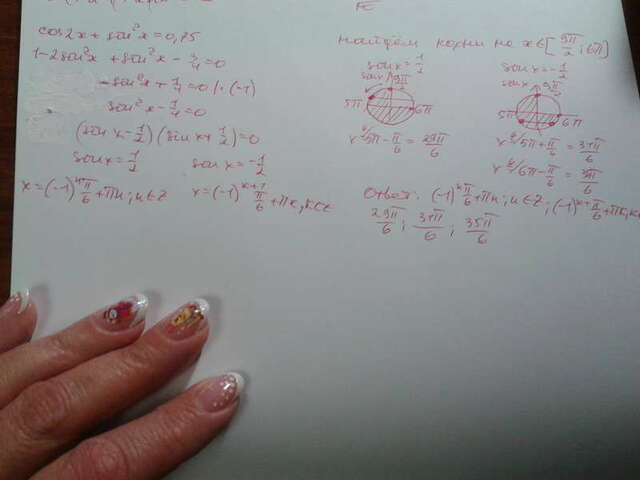 cos2x + sin²x = 0,75
1 - 2sin²x + sin²x - 3/4 = 0
- sin²x + 1/4 = 0 | · (-1)
sin²x - 1/4 = 0
(sin x - 1/2)(sin x + 1/2) = 0
sin x = 1/2 sin x = -1/2
x = (-1)ⁿ π/6 + πn; n ∈ Z x = (-1)ᵏ⁺¹ π/6 + πk, k ∈ Z
Найдём корни на x ∈ [9π/2; 6π]
sin x = 1/2
sin x 9π/2
5π 6π
x = 5π - π/6 = 29π/6
sin x = -1/2
sin x 9π/2
5π 6π
x = 5π + π/6 = 31π/6
x = 6π - π/6 = 35π/6
Ответ: (-1)ⁿ π/6 + πn; n ∈ Z; (-1)ᵏ⁺¹ π/6 + πk, k ∈
29π/6; 31π/6; 35π/6